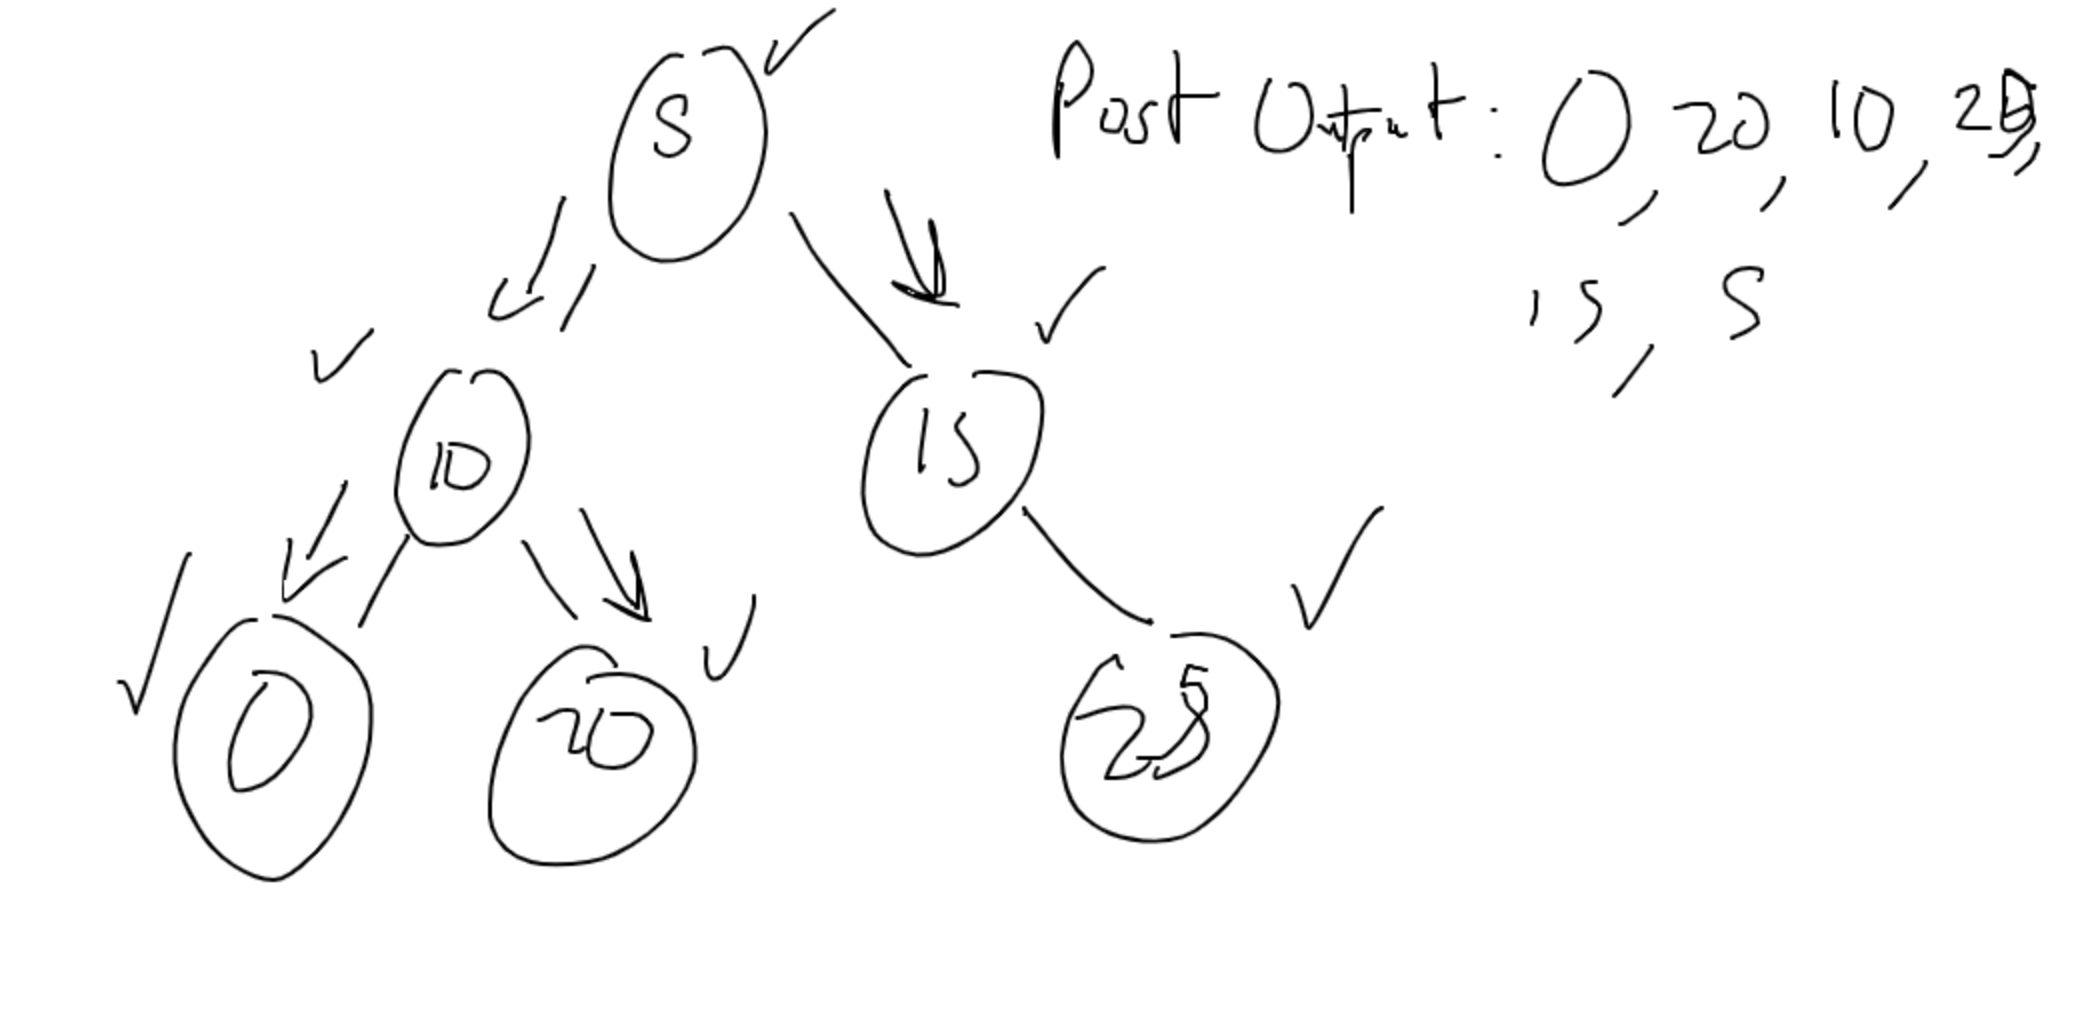 5
Post Output: 0, 20, 10, 25,
15, 5
10
15
0
20
25